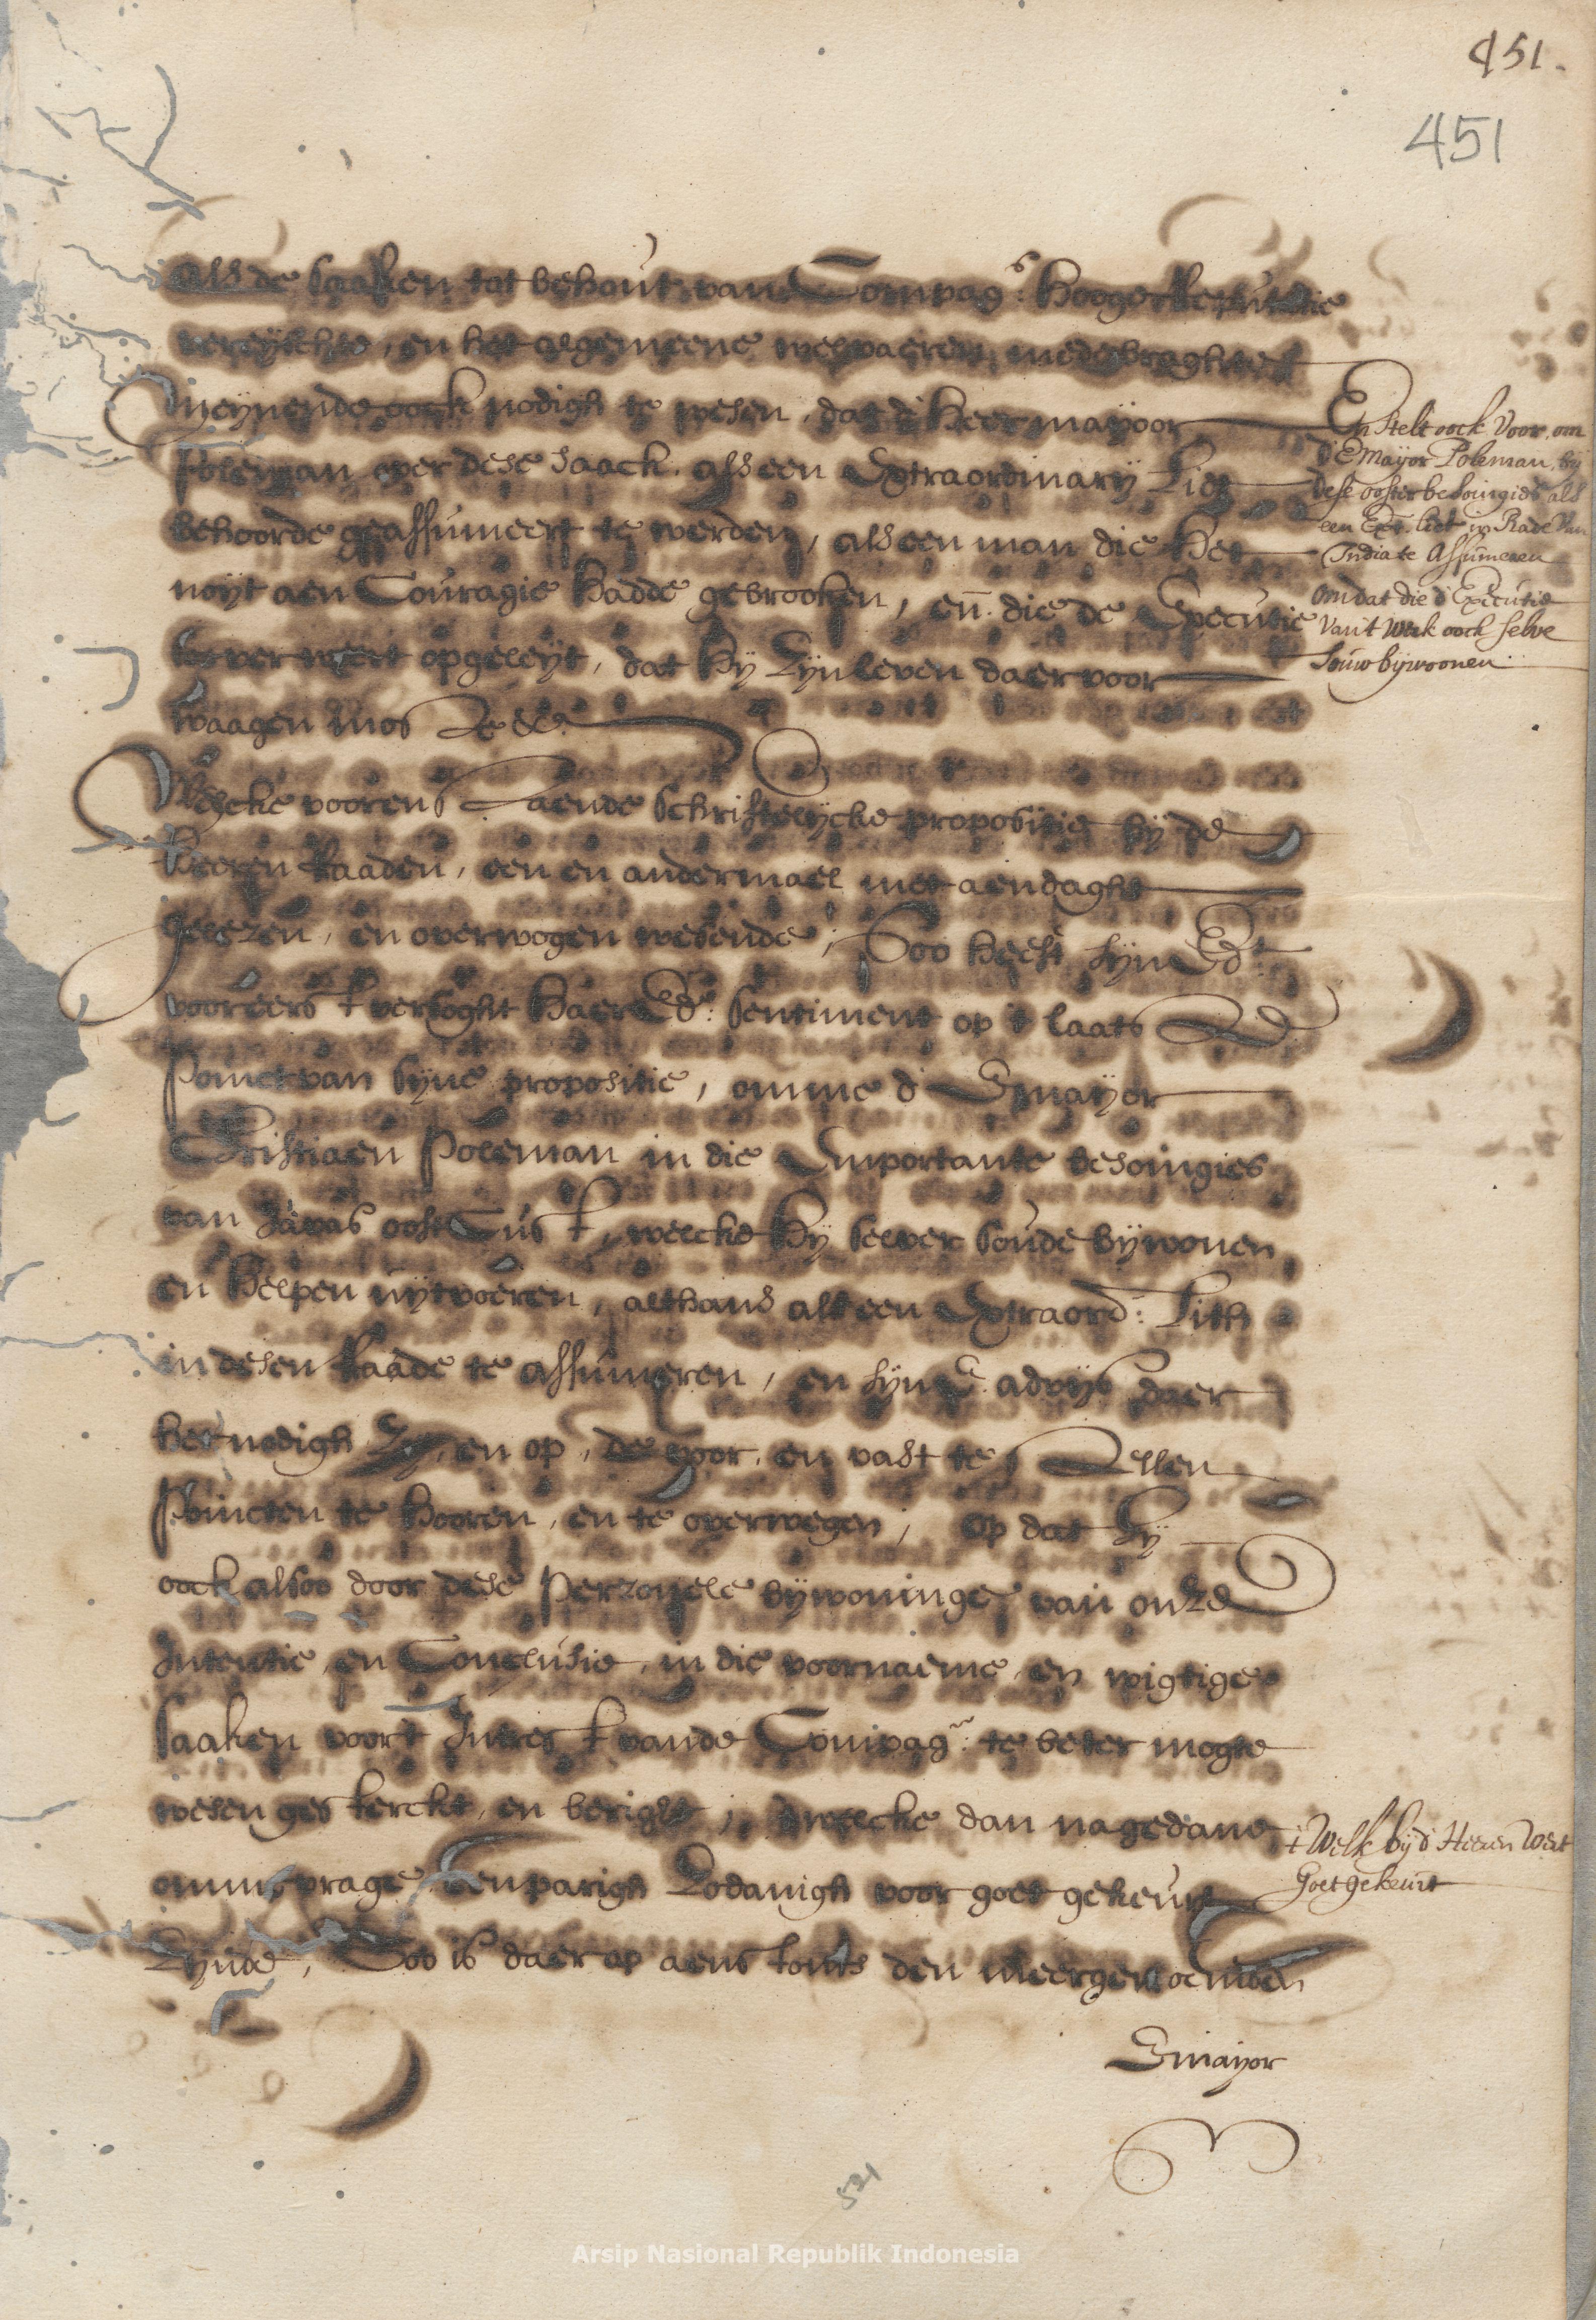 451.
451
als de saaken tot behout van Compag:s hooge Reputatie
vereyschte, en het algemeene welvaeren medebraghte
Meynende oock nodigh te wesen, dat d'heer mayoor
Poleman over dese saack, als een Extraordinary Lit
behoorde geassumeert te werden, als een man die het
noyt aen Couragie hadde gebrooken, en̄. die de Executie
wert opgeleyt, dat hy Zyn leven daer voor
waagen mos
Welcke voorenstaende schriftelycke propositie by de
heeren Raaden, een en andermael met aendaght
geleezen, en overwogen wesende; Soo heeft syn Ed:t
vooreerst versoght haer Ed:s sentiment op 't laatste
Poinct van syne propositie, omme d' E mayor
Christiaen Poleman in die Importante besoingies
van Javas oost Cust, welcke hy selver soude bywonen
en helpen uytvoeren, althans als een Extraord: Lith
in desen Raade te assumeren, en syn E. advys daer
het nodigh Zy, en op, de voor, en vast te stellen
Poincten te hooren, en te overwegen; op dat hy
oock alsoo door dese Perzonele bywoninge van onze
Intentie, en Conclusie, in die voornaeme, en wigtige
saaken voor 't Intrest vande Compag: te beter mogte
wesen gesterckt, en beright; dwelcke dan nagedane
ommevrage Eenparigh Zodanigh voor goet gekeurt
Zynde, Soo is daer op aenstonts den meergenoemden
E mayor
En stelt oock voor, om
d'E mayor Poleman, by
dese ooster besoingies als
een Ext. Lit in Rade van
India te Assumeren
omdat die d'Executie
van 't werk oock selve
souw bywoonen
't Welk by d' Heeren wert
Goet gekeurt
521
Arsip Nasional Republik Indonesia